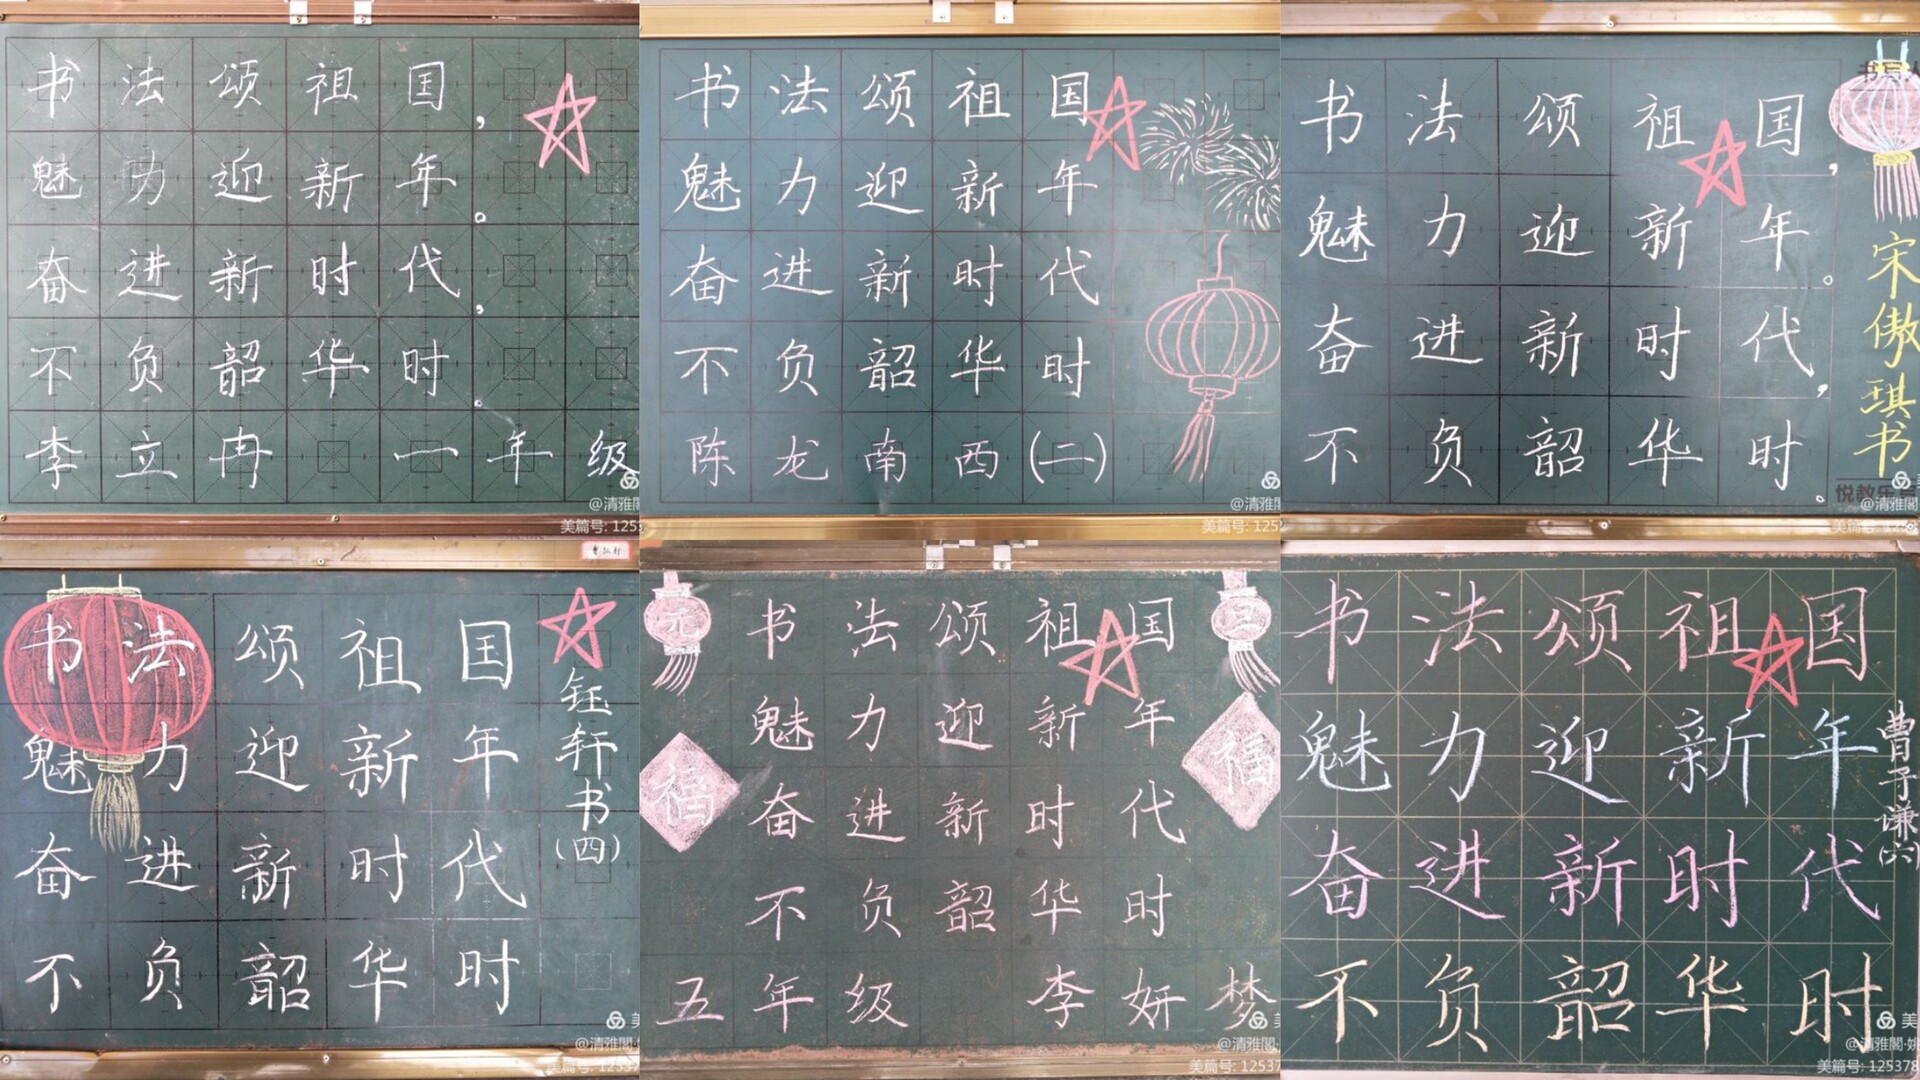 书法颂祖国，
魅力迎新年。
奋进新时代，
不负韶华时.
李立冉 一年级
@清雅閣
美篇号: 125
书法颂祖国
魅力迎新年
奋进新时代
不负韶华时
陈龙南西(二)
@清雅
美篇号: 1252
书法颂祖国，
魅力迎新年。
奋进新时代，
不负韶华时。
宋傲琪书
悦教乐
@清雅閣
书法颂祖国
魅力迎新年
奋进新时代
不负韶华时
钰轩书(四)
美
@清雅閣
美篇号: 12537
元
旦
福
福
书法颂祖国
魅力迎新年
奋进新时代
不负韶华时
五年级 李妍梦
@清雅閣
美篇号: 12537
书法颂祖国
魅力迎新年
奋进新时代
不负韶华时
曹子谦(六)
美
@清雅閣·姚
美篇号: 125378